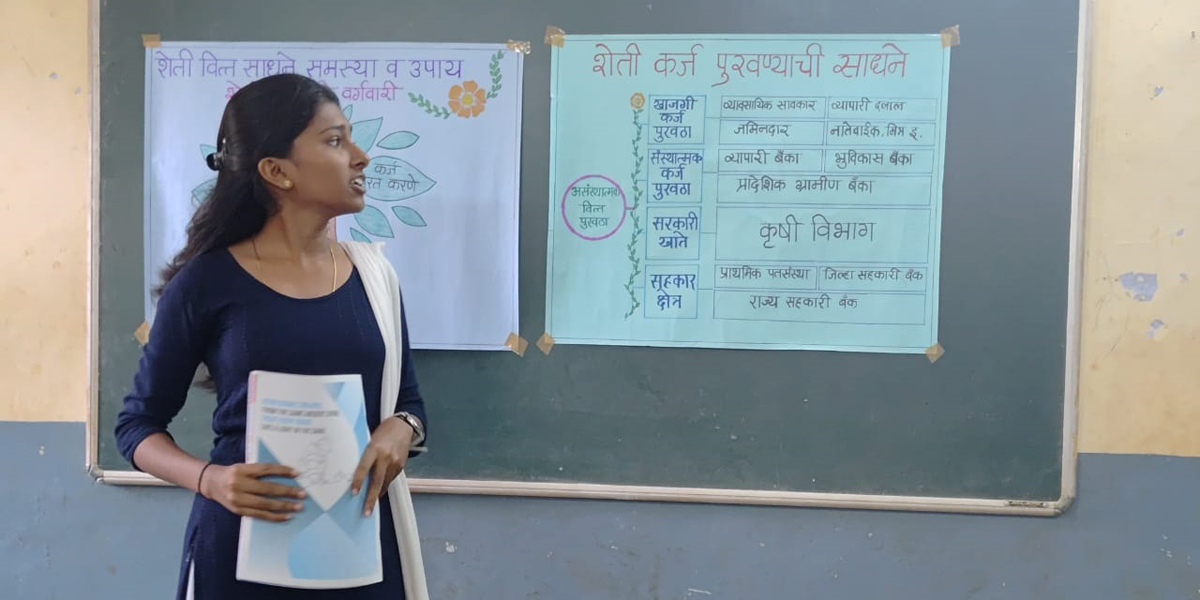 शेती वित्त साधने समस्या व उपाय
वर्गवारी
कर्ज
करणे
शेती कर्ज पुरवण्याची साधने
वित्त
पुरवठा
खाजगी
कर्ज
पुरवठा
व्यावसायिक सावकार
व्यापारी दलाल
जमिनदार
नातेवाईक, मित्र इ.
संस्थात्मक
कर्ज
पुरवठा
व्यापारी बँका
भुविकास बँका
प्रादेशिक ग्रामीण बँका
सरकारी
खाते
कृषी विभाग
सहकार
क्षेत्र
प्राथमिक पतसंस्था
जिल्हा सहकारी बँक
राज्य सहकारी बँक